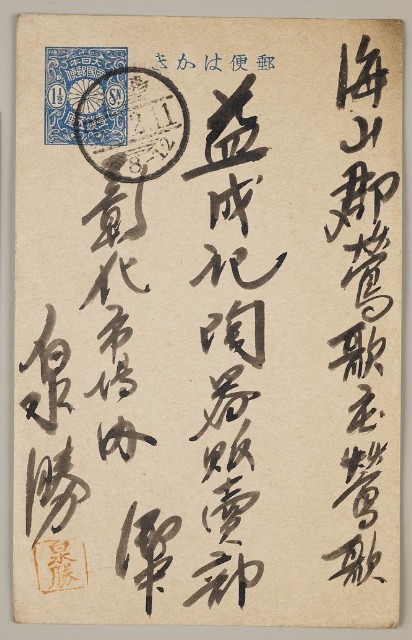 郵便はかき
大日本帝國郵便
1½ Sn
2.11
8-12
海山郡鶯歌庄鶯歌
益成記陶器販賣部
御中
彰化市場內
泉勝
泉勝